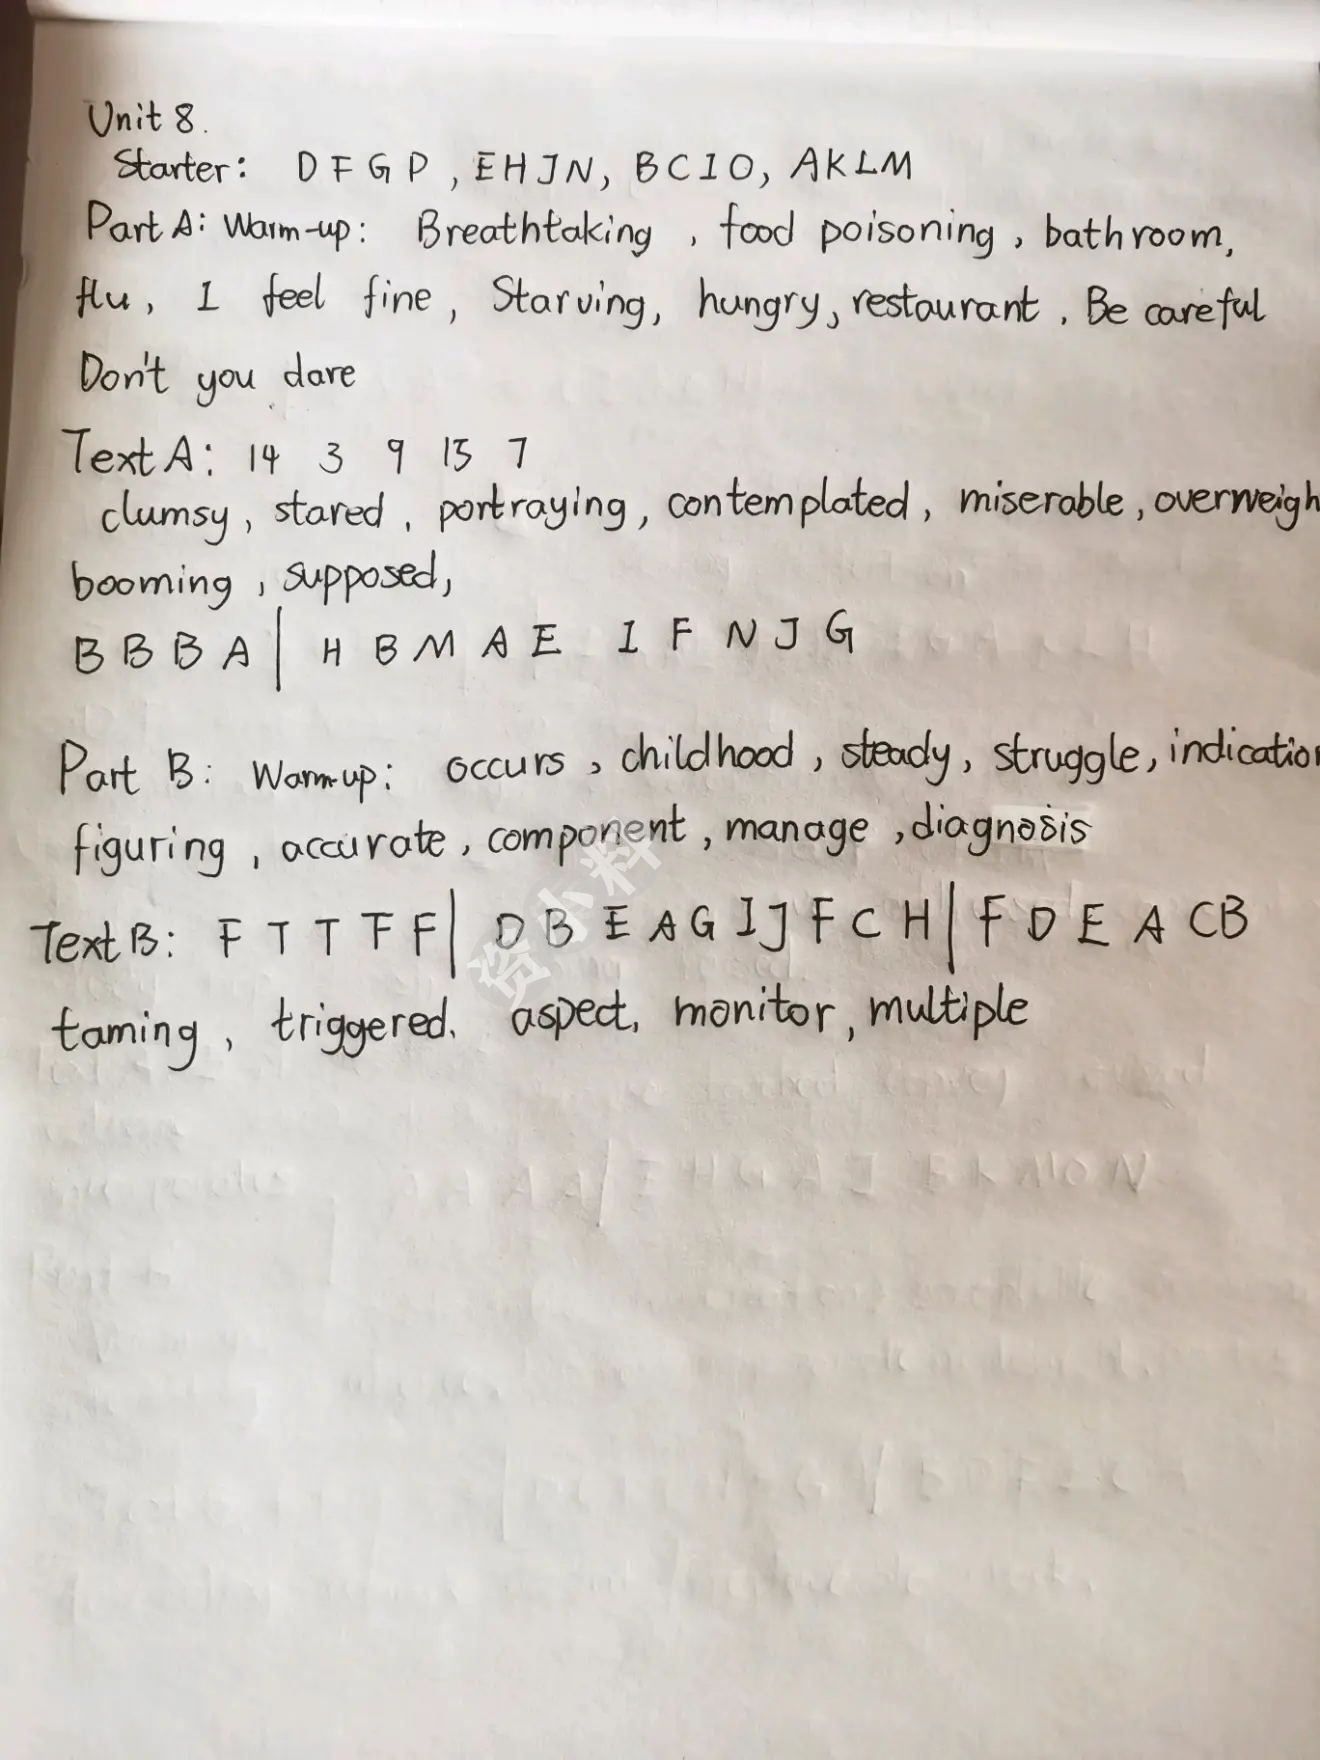 Unit 8.
Starter: D F G P, E H J N, B C I O, A K L M
Part A: Warm-up: Breathtaking, food poisoning, bathroom,
flu, I feel fine, Starving, hungry, restaurant. Be careful
Don't you dare
Text A: 14 3 9 15 7
clumsy, stared, portraying, contemplated, miserable, overweigh
booming, supposed,
B B B A | H B M A E I F N J G
Part B: Warm-up: occurs, childhood, steady, struggle, indication
figuring, accurate, component, manage, diagnosis
Text B: F T T F F | D B E A G I J F C H | F D E A C B
taming, triggered. aspect. monitor, multiple
资小料